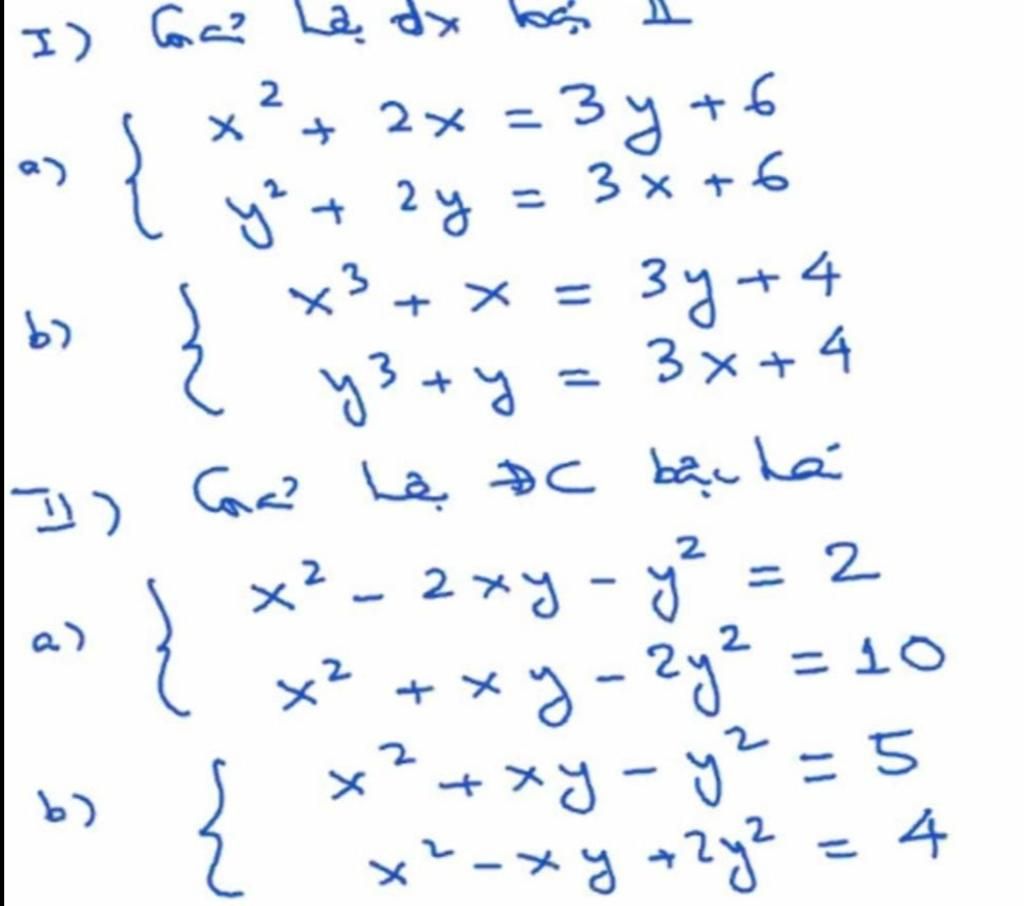 I) Giải hệ đx loại II
a) { x² + 2x = 3y + 6
y² + 2y = 3x + 6
b) { x³ + x = 3y + 4
y³ + y = 3x + 4
II) Giải hệ ĐC bậc hai
a) { x² - 2xy - y² = 2
x² + xy - 2y² = 10
b) { x² + xy - y² = 5
x² - xy + 2y² = 4